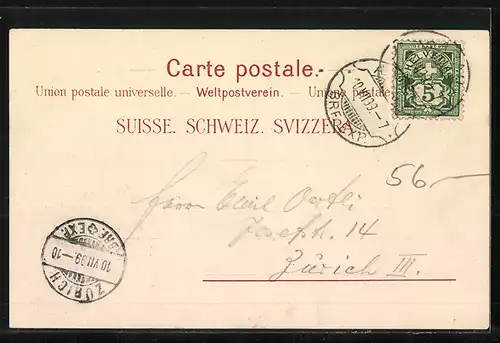 Carte postale.
Union postale universelle. — Weltpostverein. — Unione postale
SUISSE. SCHWEIZ. SVIZZERA
10.VII.99.-7
BRF.EXP.
5
56.-
Herrn Emil Oertli
Josefstr. 14
Zürich III.
BRF. EXP.
10.VII.99-10
ZÜRICH